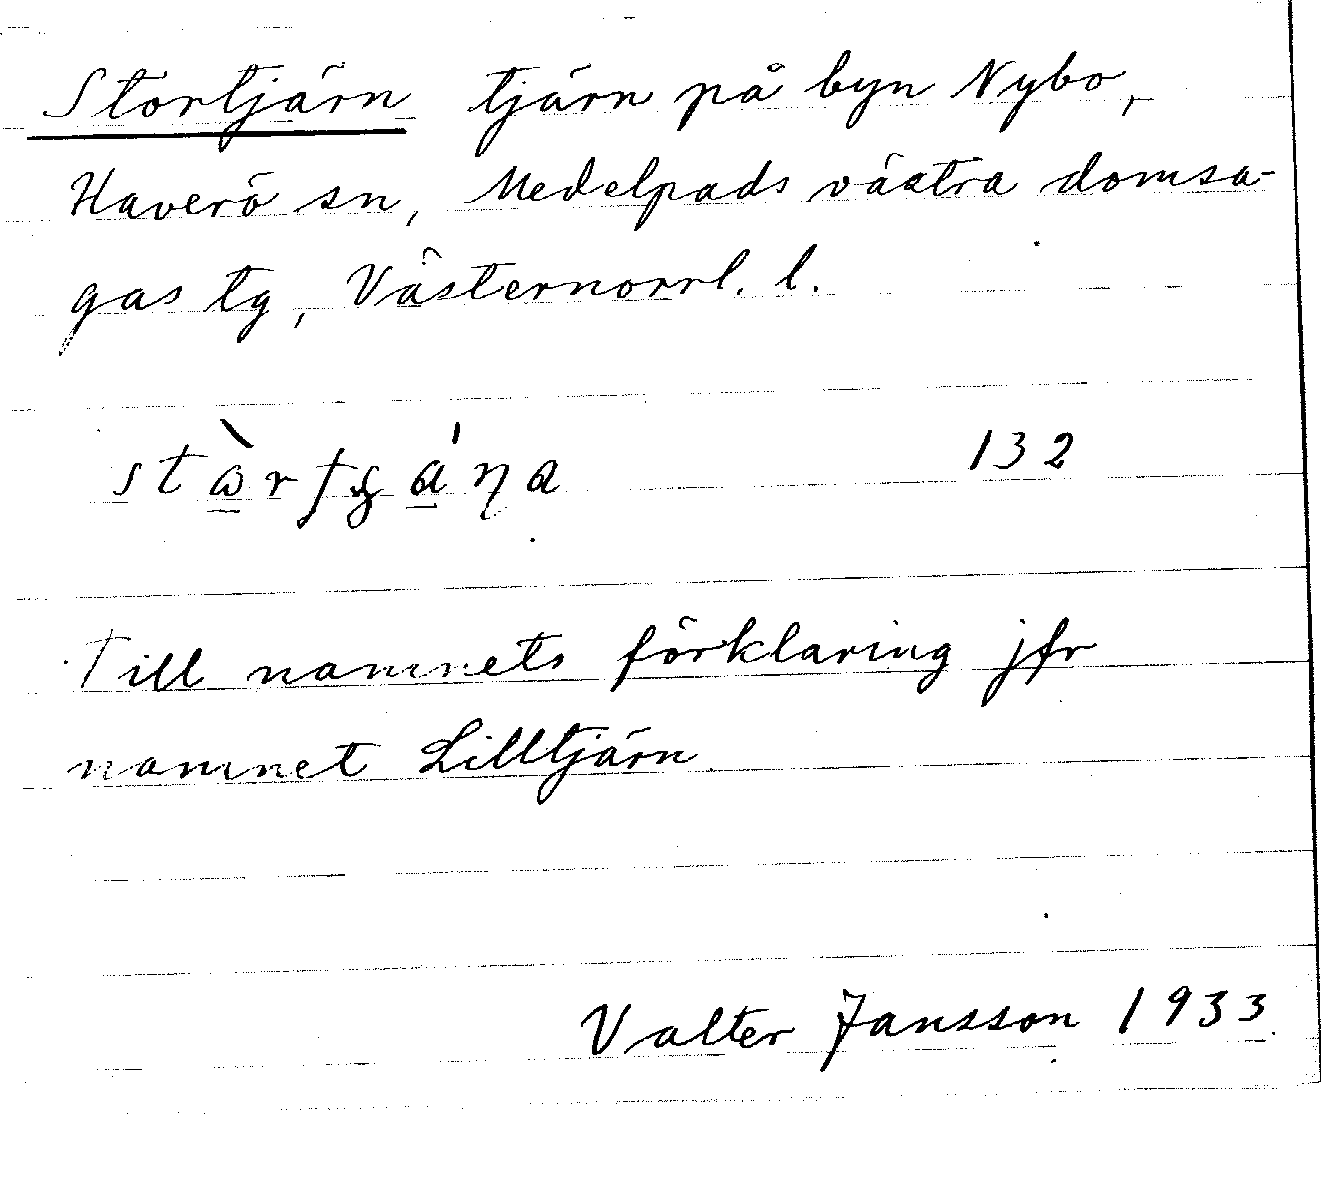 Stortjärn tjärn på byn Nybo,
Haverö sn, Medelpads västra domsa-
gas tg, Västernorrl. l.
132
Till namnets förklaring jfr
namnet Lilltjärn.
Valter Jansson 1933.